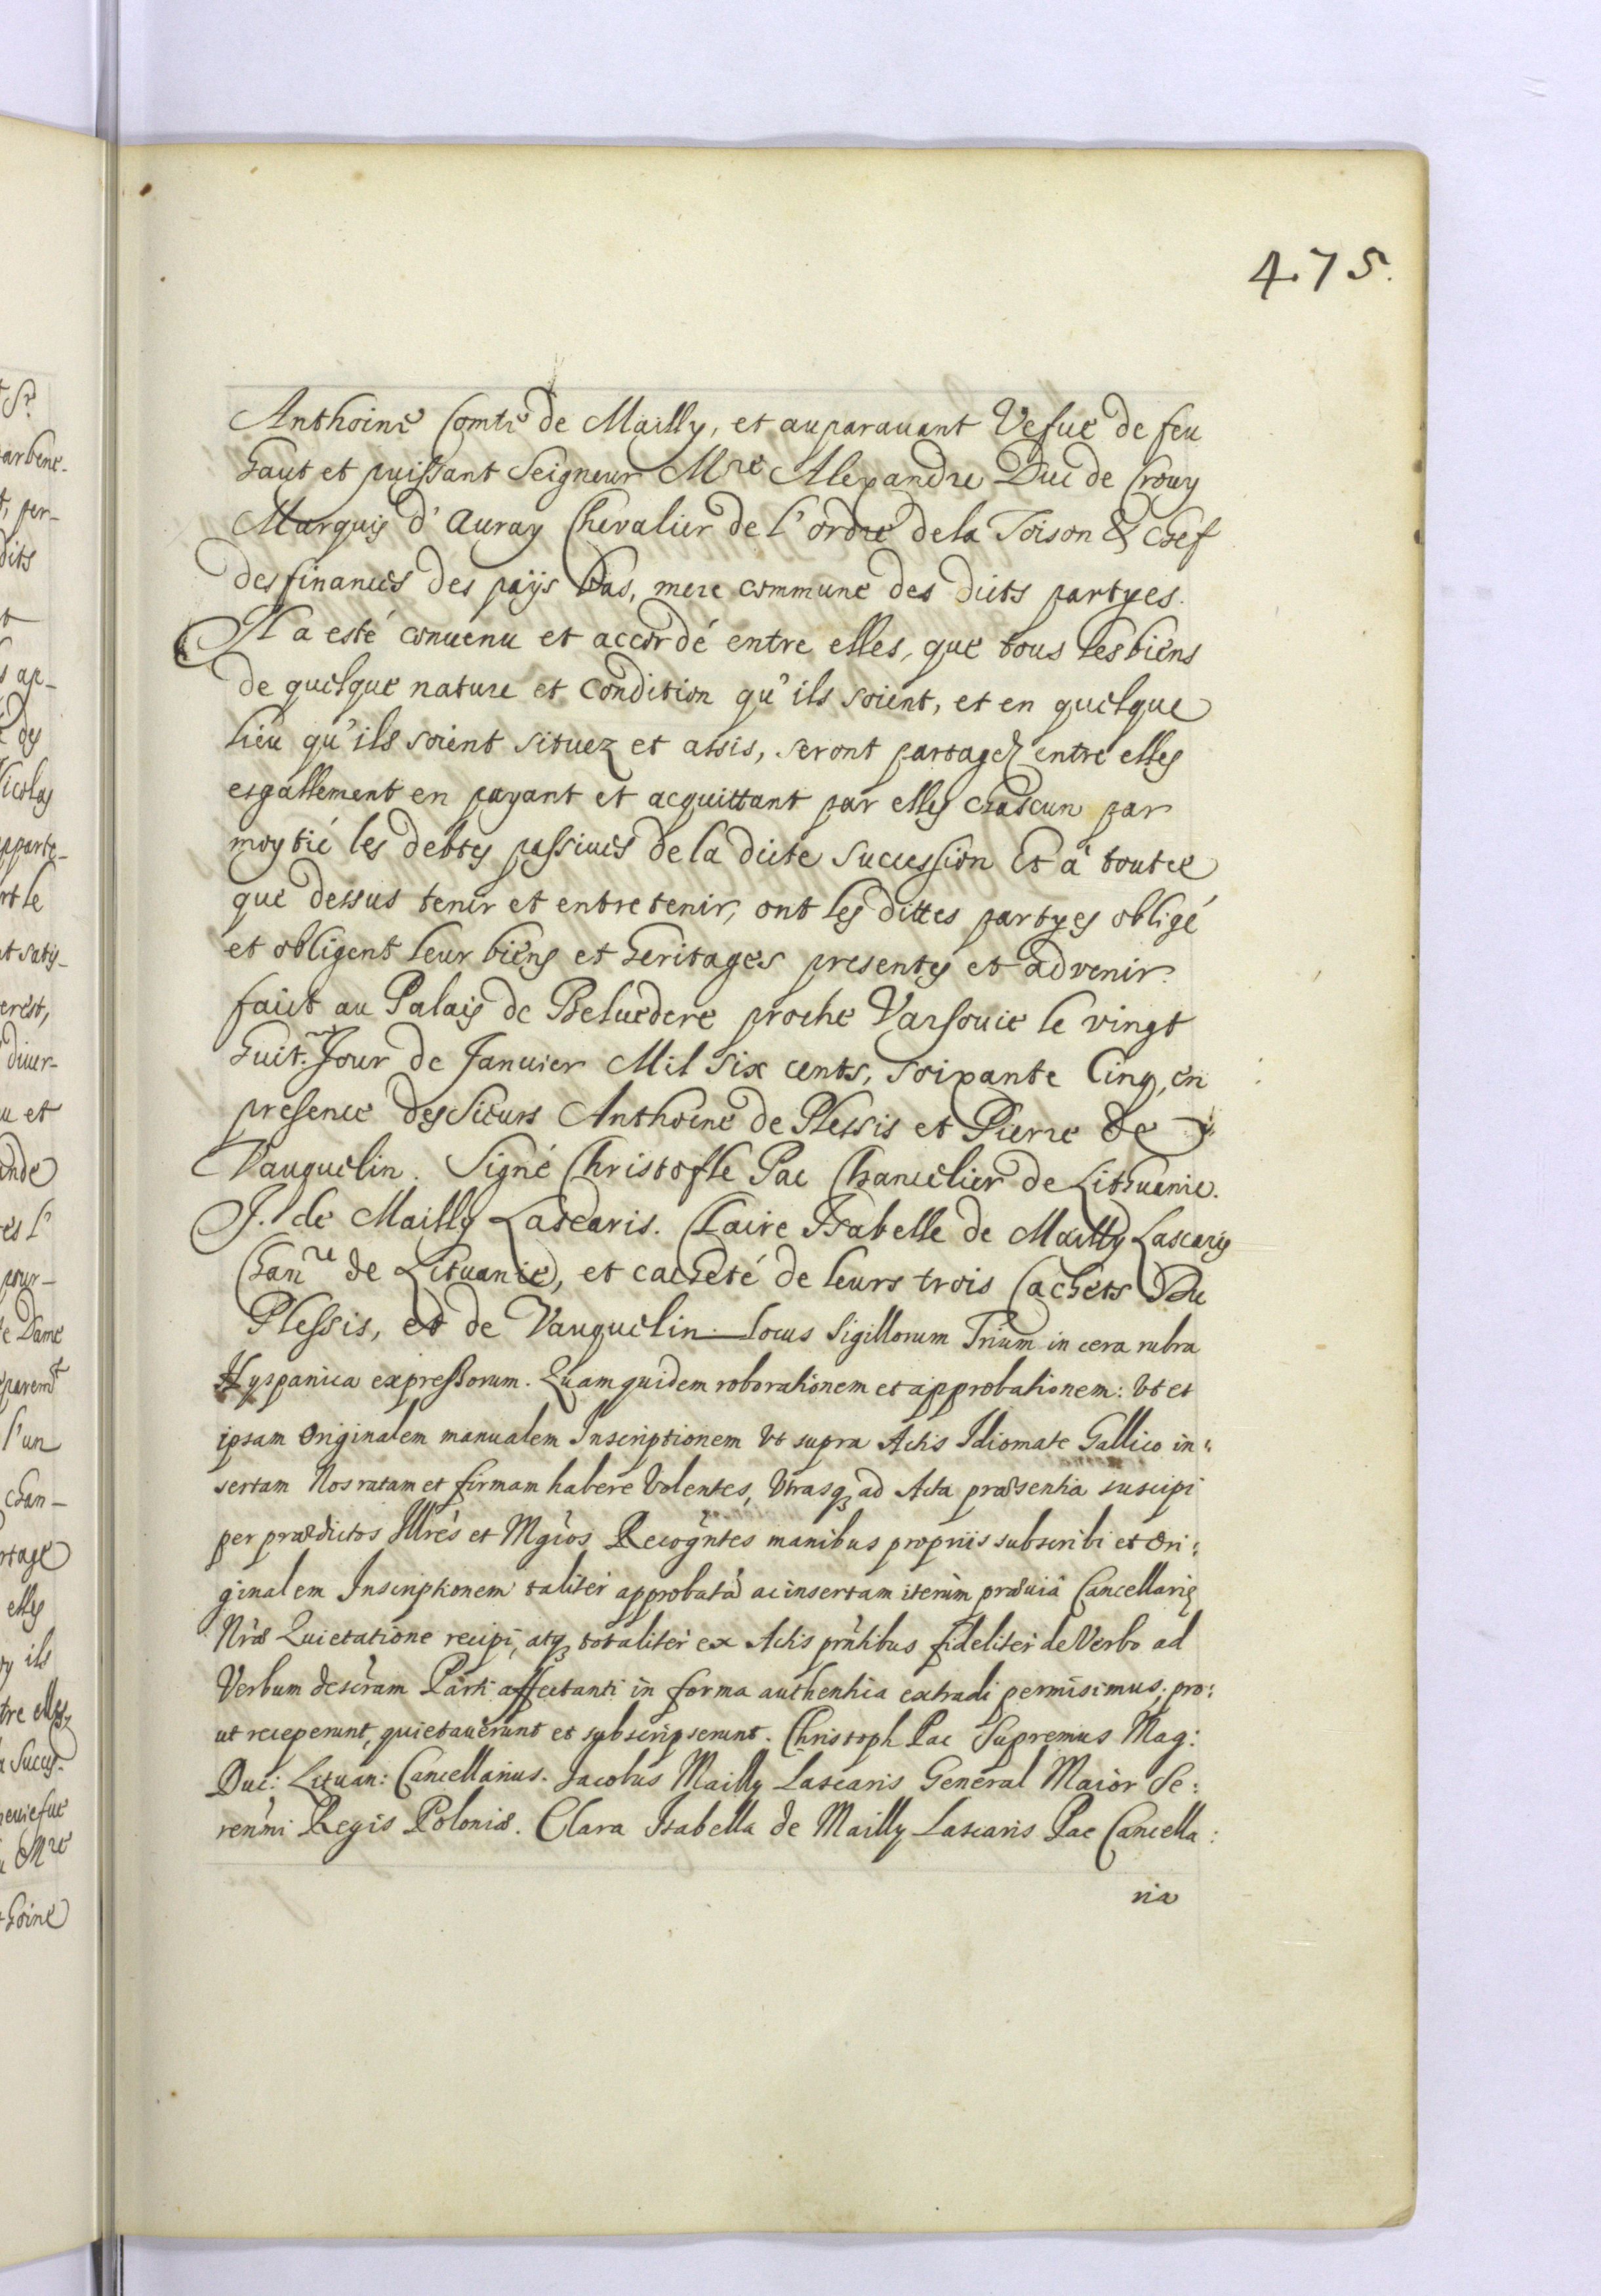 475.
Anthoine Comte de Mailly, et auparauant Vefue de feu
haut et puissant Seigneur Mre Alexandre Duc de Crouy
Marquis d'Auray Chevalier de l'ordre de la Toison & chef
des finances des païjs bas, mere commune des dicts partyes.
Il a esté conuenu et accordé entre elles, que tous les biens
de quelque nature et condition qu'ils soient, et en quelque
lieu qu'ils soient situez et assis, seront partagez entre elles
esgallement en payant et acquittant par elles chascun par
moytié les debtes passiues de la dicte succession Et à toutce
que dessus tenir et entretenir, ont les dittes partyes obligé
et obligent leur biens et heritages presentes et advenir.
faict au Palais de Beluedere proche Varsouie le vingt
huit.me Jour de Januier Mil six cents, soixante Cinq, en
presence des Sieurs Anthoine de Plessis et Pierre de
Vauquelin. Signé Christofle Pac Chancelier de Lithuanie.
J. de Mailly Lascaris. Claire Isabelle de Mailly Lascaris
Chanre de Lituanie, et cacheté de leurs trois Cachets Du
Plessis, et de Vauquelin. Locus Sigillorum Trium in cera rubra
Hyspanica expressorum. Quam quidem roborationem et approbationem: Vt et
ipsam Originalem manualem Inscriptionem Vt supra Actis Idiomate Gallico in:
sertam Nos ratam et firmam habere Volentes, Vtrasq3 ad Acta præsentia suscipi
per prædictos Illres et Mgcos Recogntes manibus propriis subscribi et Ori:
ginalem Inscriptionem taliter approbatã ac insertam iterum præuia Cancellariæ
Nræ Quietatione recipi, atq3 totaliter ex Actis prntibus fideliter de Verbo ad
Verbum descram Parti affectanti in forma authentica extradi permisimus; pro:
ut receperunt, quietauerunt et subscripserunt. Christoph Pac Supremus Mag:
Duc: Lituan: Cancellarius. Jacobus Mailly Lascaris General Maior Se:
renmi Regis Poloniæ. Clara Isabella de Mailly Lascaris Pac Cancella:
ria